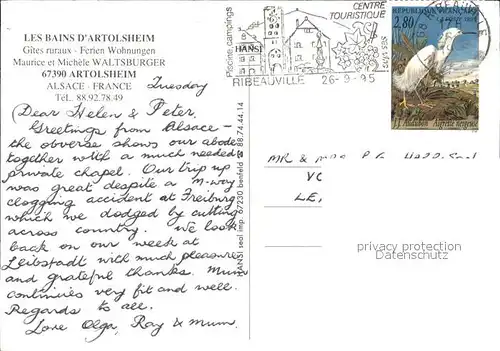 LES BAINS D'ARTOLSHEIM
Gîtes ruraux - Ferien Wohnungen
Maurice et Michèle WALTSBURGER
67390 ARTOLSHEIM
ALSACE - FRANCE
Tél. 88.92.78.49
Tuesday
Dear Helen & Peter,
Greetings from Alsace -
the obverse shows our abode
together with a much needed
private chapel. Our trip up
was great despite a m-way
clogging accident at Freiburg
which we dodged by cutting
across country. We look
back on our week at
Leibstadt with much pleasure
and grateful thanks. Mum
continues very fit and well.
Regards to all.
Love Olga, Ray & Mum.
HANSI seol imp. 67230 benfeld ☎ 88.74.44.14
Piscine, campings
HANSI
CENTRE
TOURISTIQUE
RIBEAUVILLE 26-9-95
RIBEAUVILLE
REPUBLIQUE FRANCAISE
2,80
LA POSTE 1995
J.J. Audubon Aigrette neigeuse
MR & MRS P.
privacy protection
Datenschutz